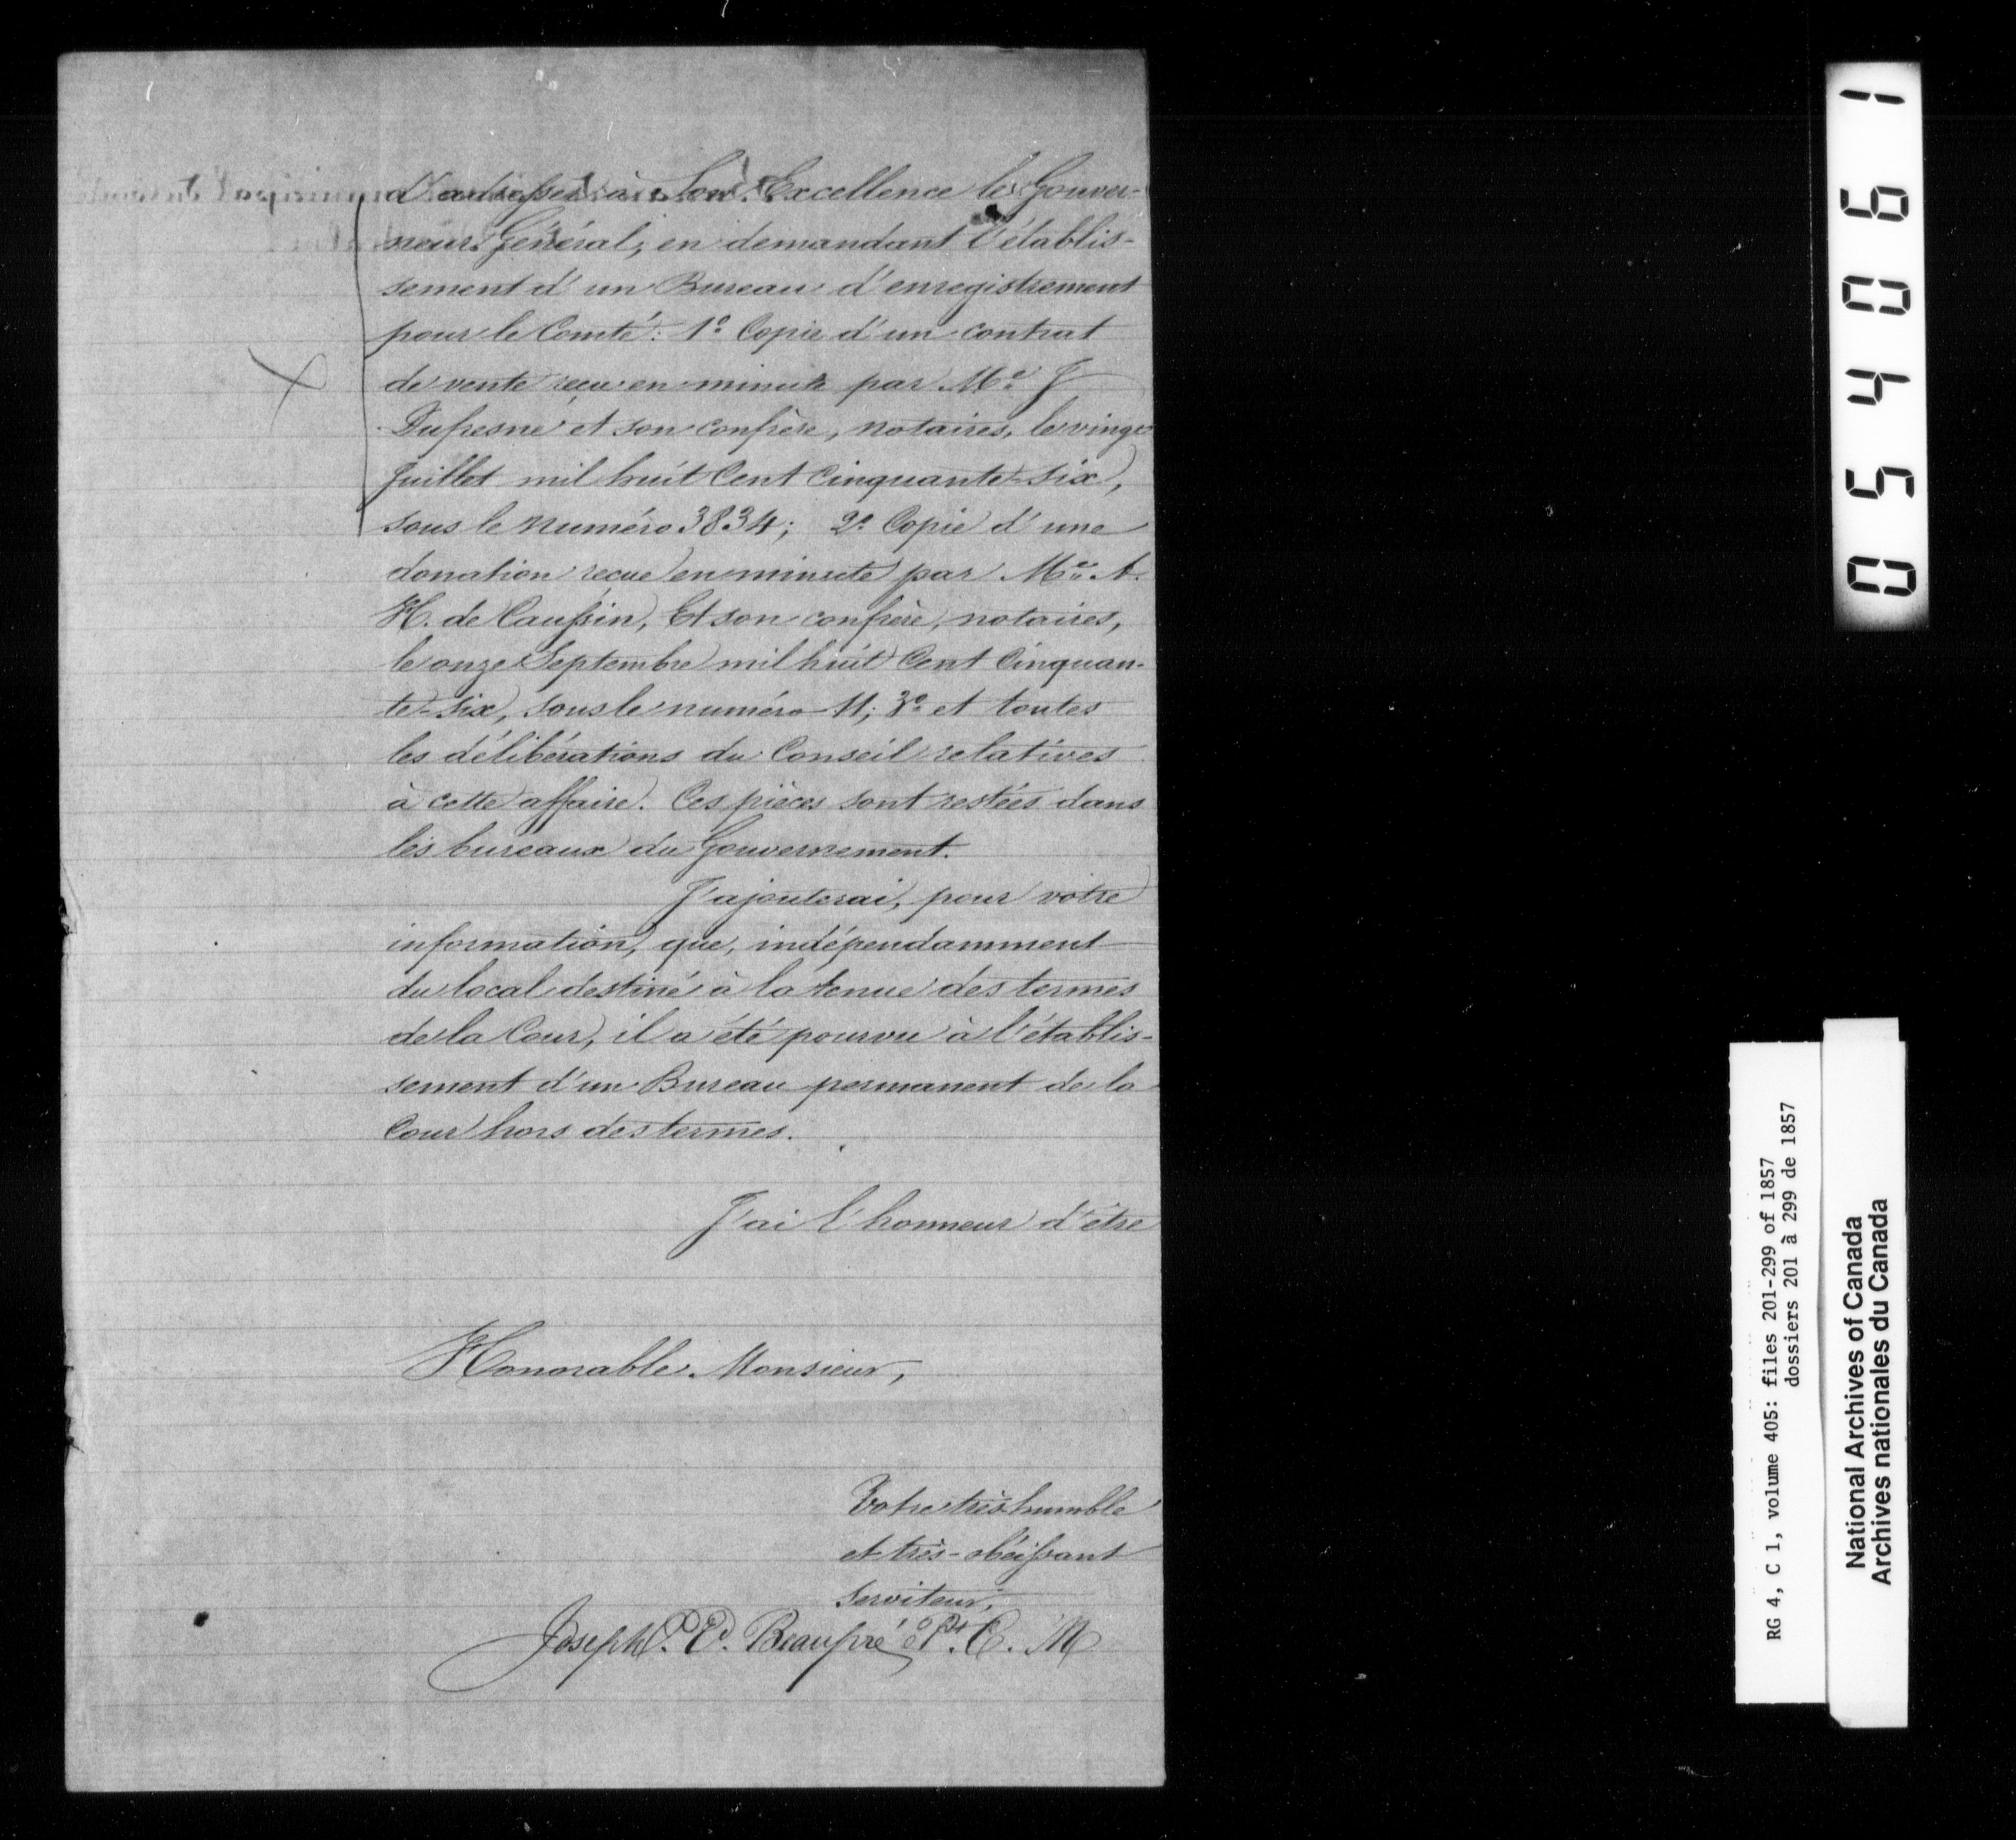 d'adresser à Son Excellence le Gouver-
neur Général, en demandant l'établis-
sement d'un Bureau d'enregistrement
pour le Comté: 1º Copie d'un contrat
de vente reçu en minute par Me. J
Dufresne et son confrère, notaires, le vingt
Juillet mil huit Cent Cinquante-six,
sous le Numéro 3834; 2º Copie d'une
donation reçue en minute par Me. A.
H. de Caussin, Et son confrère, notaires,
le onze Septembre mil huit Cent Cinquan-
te-six, sous le numéro 11; 3º et toutes
les délibérations du Conseil relatives
à cette affaire. Ces pièces sont restées dans
les bureaux du Gouvernement.
J'ajouterai, pour votre
information, que, indépendamment
du local destiné à la tenue des termes
de la Cour, il a été pourvu à l'établis-
sement d'un Bureau permanent de la
Cour hors des termes.
J'ai l'honneur d'être
Honorable Monsieur,
Votre très humble
et très-obéissant
Serviteur,
Joseph O. E. Beaupré Pt. C. M
054061
RG 4, C 1, volume 405: files 201-299 of 1857
dossiers 201 à 299 de 1857
National Archives of Canada
Archives nationales du Canada